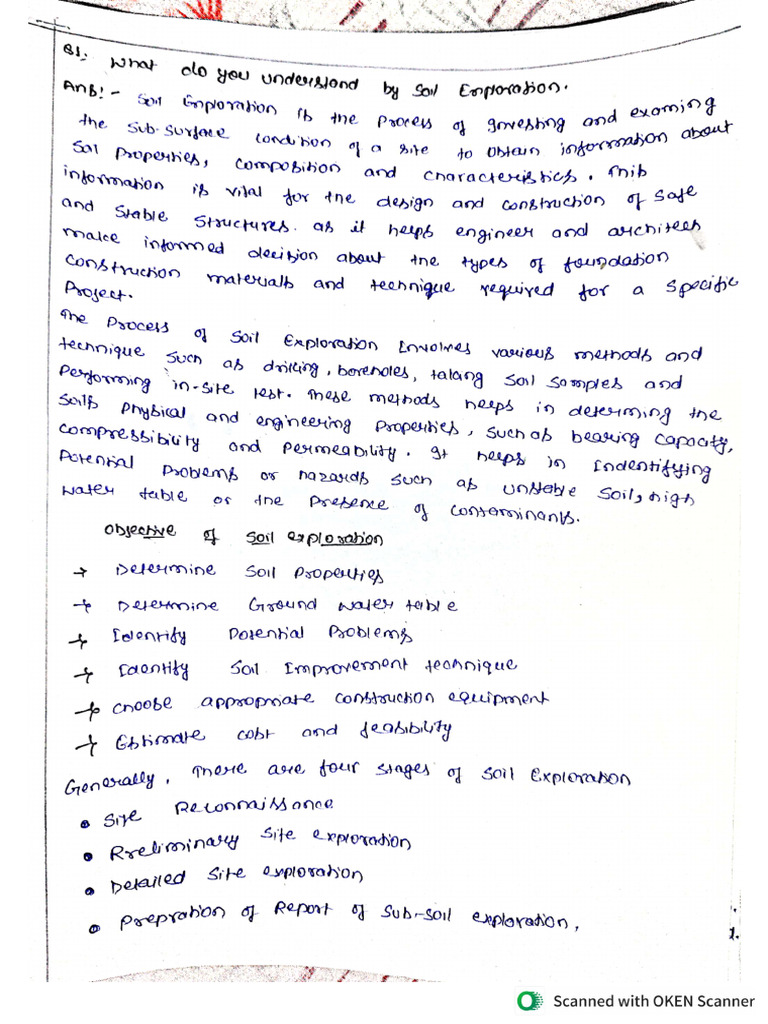 Q1. What do you understand by Soil Exploration.
Ans:- Soil Exploration is the process of Investing and examing
the sub-surface condition of a site to obtain information about
Soil Properties, composition and characteristics. This
information is vital for the design and construction of safe
and stable structures. as it helps engineer and architees
make informed decision about the types of foundation
construction materials and technique required for a specific
Project.
The Process of Soil Exploration Involves various methods and
technique such as drilling, boreholes, taking soil samples and
Performing in-site test. These methods helps in determing the
soils physical and engineering Properties, such as bearing capacity,
compressibility and Permeability. It helps in Indentifying
Potential Problems or hazards such as unstable soil, high
water table or the Presence of contaminants.
Objective of soil exploration
→ Determine Soil Properties
→ Determine Ground water table
→ Identify Potential Problems
→ Identify Soil Improvement technique
→ choose appropriate construction equipment
→ Estimate cost and feasibility
Generally, There are four stages of soil Exploration
• Site Reconnaissance
• Preliminary site exploration
• Detailed site exploration
• Prepration of Report of sub-soil exploration,
1.
Scanned with OKEN Scanner